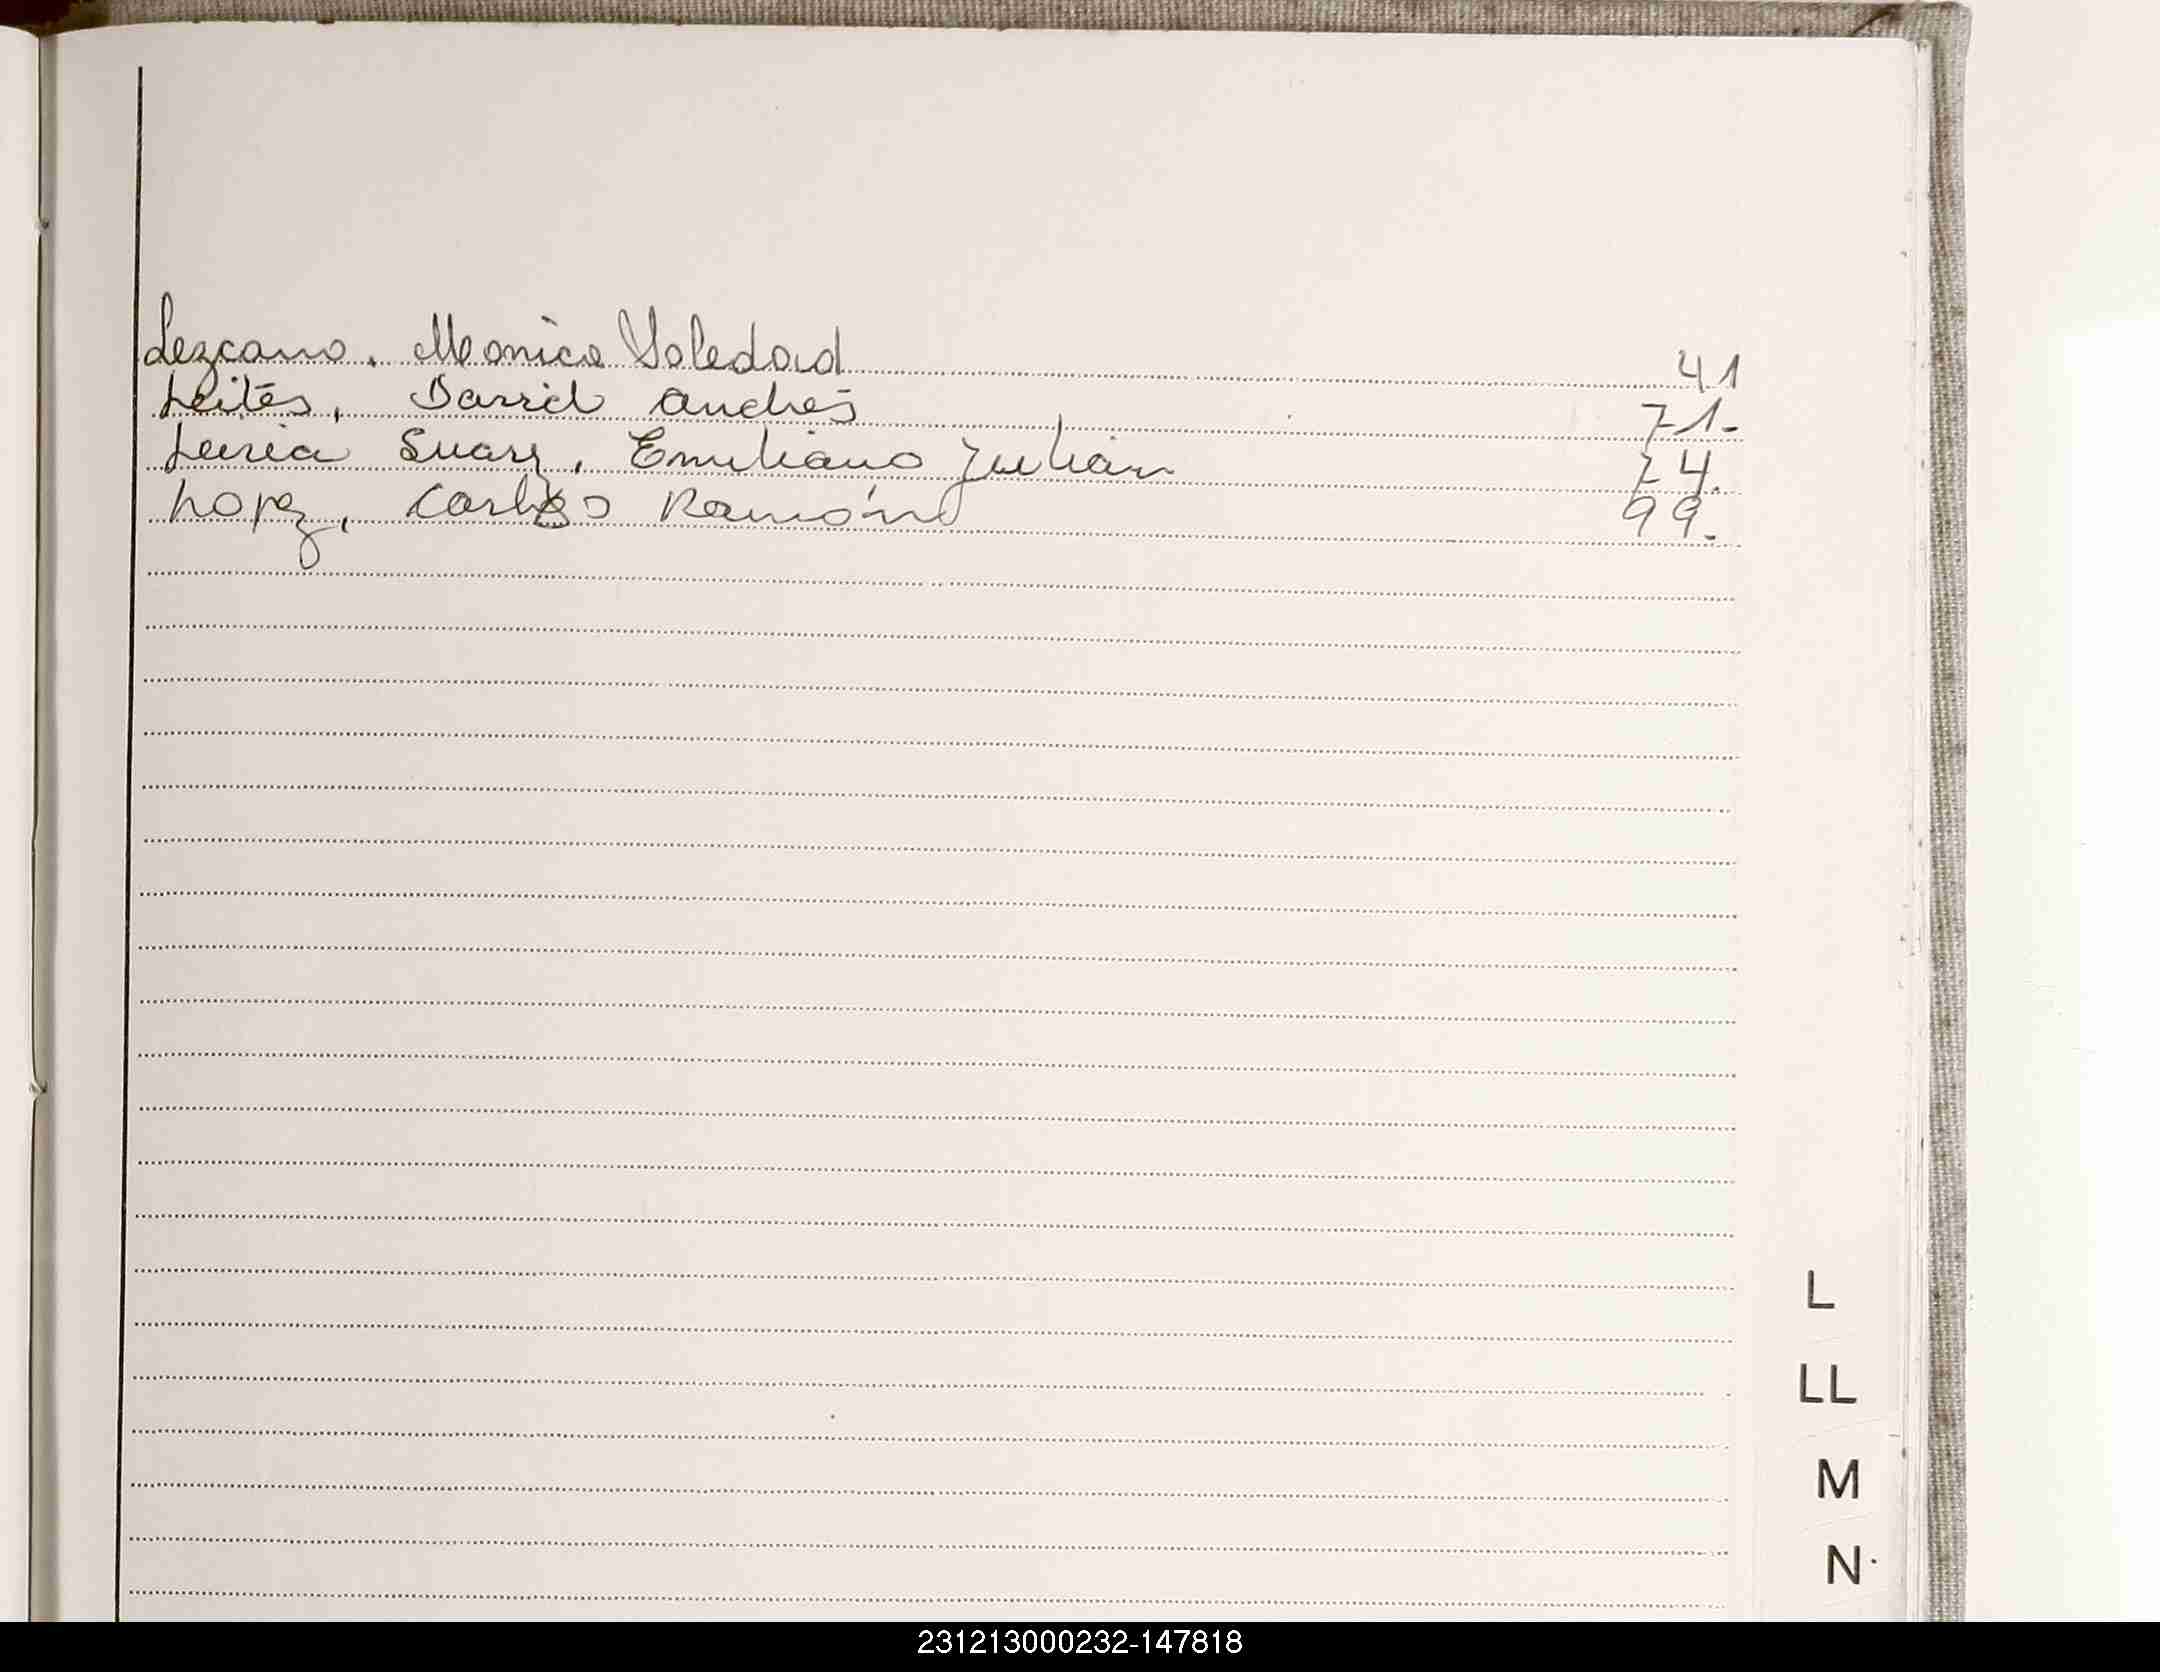 Lezcano, Monica Soledad 41
Leites, David Andrés 71.
Leiria Suarz, Emiliano Julián 74.
Lopez, Carlos Ramón 99.
L
LL
M
N
231213000232-147818